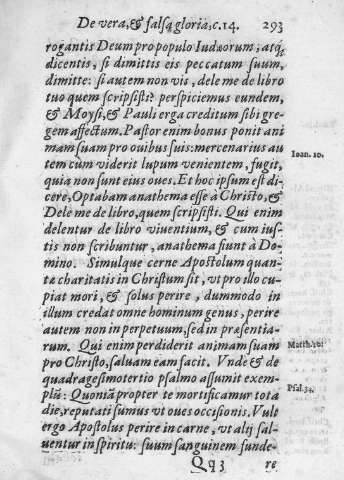 De vera, & falsa gloria, c. 14. 293
rogantis Deum pro populo Iudæorum; atq;
dicentis, si dimittis eis peccatum suum,
dimitte: si autem non vis, dele me de libro
tuo quem scripsisti? perspiciemus eundem,
& Moysi, & Pauli erga creditum sibi gre-
gem affectum. Pastor enim bonus ponit ani
mam suam pro ouibus suis: mercenarius au
tem cùm viderit lupum venientem, fugit,
Ioan. 10.
quia non sunt eius oues. Et hoc ipsum est di-
cere, Optabam anathema esse à Christo, &
Dele me de libro, quem scripsisti. Qui enim
delentur de libro viuentium, & cum ius-
tis non scribuntur, anathema fiunt à Do-
mino. Simulque cerne Apostolum quan-
tæ charitatis in Christum sit, vt pro illo cu-
piat mori, & solus perire, dummodo in
illum credat omne hominum genus, perire
autem non in perpetuum, sed in præsentia-
rum. Qui enim perdiderit animam suam
Matth. 10.
pro Christo, saluam eam facit. Vnde & de
quadragesimotertio psalmo assumit exem-
plũ: Quoniã propter te mortificamur tota
Psal. 34.
die, reputati sumus vt oues occisionis. Vult
ergo Apostolus perire in carne, vt alij sal-
uentur in spiritu: suum sanguinem funde-
Qq3 re